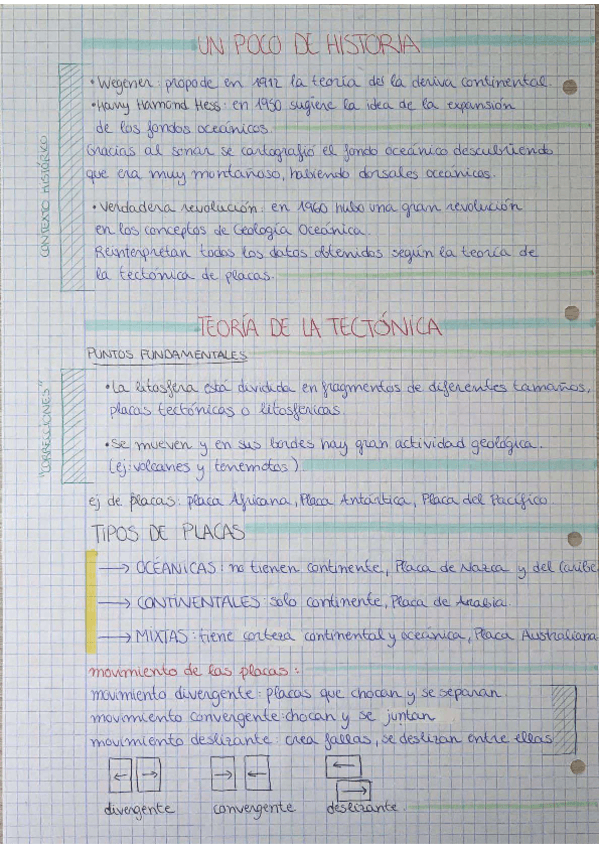 UN POCO DE HISTORIA
• Wegener: propode en 1912 la teoría des la deriva continental.
• Harry Hamond Hess: en 1950 sugiere la idea de la expansión
de los fondos oceánicos.
Gracias al sonar se cartografió el fondo oceánico descubriendo
que era muy montañoso, habiendo dorsales oceánicos.
CONTEXTO HISTÓRICO
• Verdadera revolución: en 1960 hubo una gran revolución
en los conceptos de Geología Oceánica.
Reinterpretan todos los datos obtenidos según la teoría de
la tectónica de placas.
TEORÍA DE LA TECTÓNICA
PUNTOS FUNDAMENTALES
"CORRECCIONES"
• La litosfera está dividida en fragmentos de diferentes tamaños,
placas tectónicas o litosfericas
• Se mueven y en sus bordes hay gran actividad geológica.
(ej: volcanes y terremotos)
ej de placas: placa Africana, Placa Antártica, Placa del Pacífico
TIPOS DE PLACAS
→ OCÉANICAS: no tienen continente, Placa de Nazca y del Caribe
→ CONTINENTALES: solo continente, Placa de Arabia.
→ MIXTAS: tiene corteza continental y oceánica, Placa Australiana
movimiento de las placas:
movimiento divergente: placas que chocan y se separan.
movimiento convergente: chocan y se juntan
movimiento deslizante: crea fallas, se deslizan entre ellas
divergente convergente deslizante.